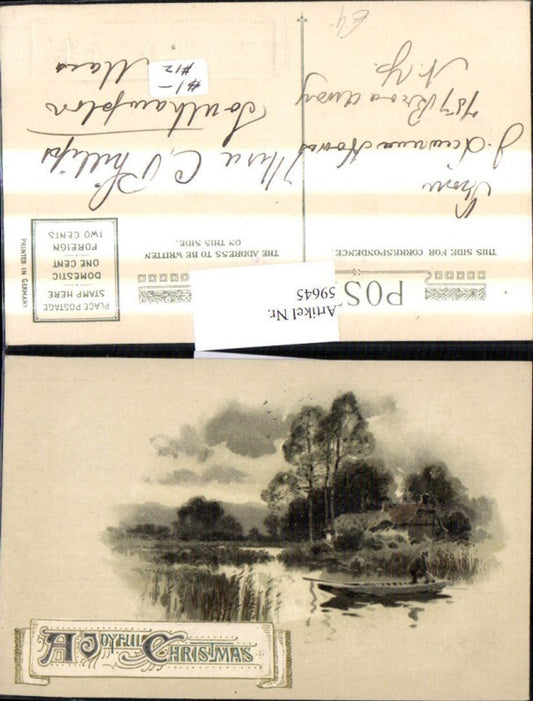 POST
THIS SIDE FOR CORRESPONDENCE.
THE ADDRESS TO BE WRITTEN
ON THIS SIDE.
PLACE POSTAGE
STAMP HERE
DOMESTIC
ONE CENT
FOREIGN
TWO CENTS
PRINTED IN GERMANY
Artikel Nr.
59645
From
J. Lawrence
787 Broadway
N.Y.
C. Phillips
Southampton
Mass
#1-
#12
A JOYFUL CHRISTMAS